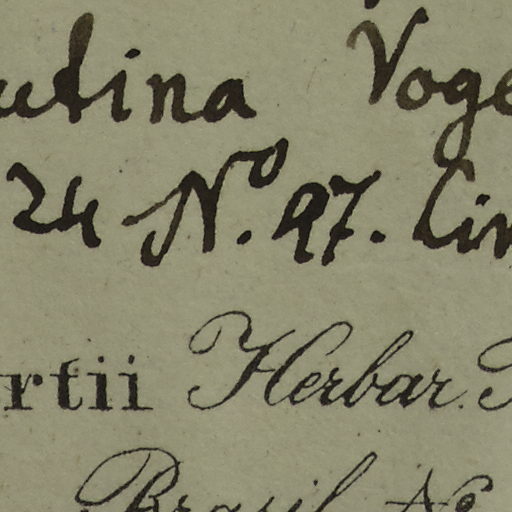 utina Voge
24 Nº. 97. Lin
rtii Herbar.
Brasil. Nº